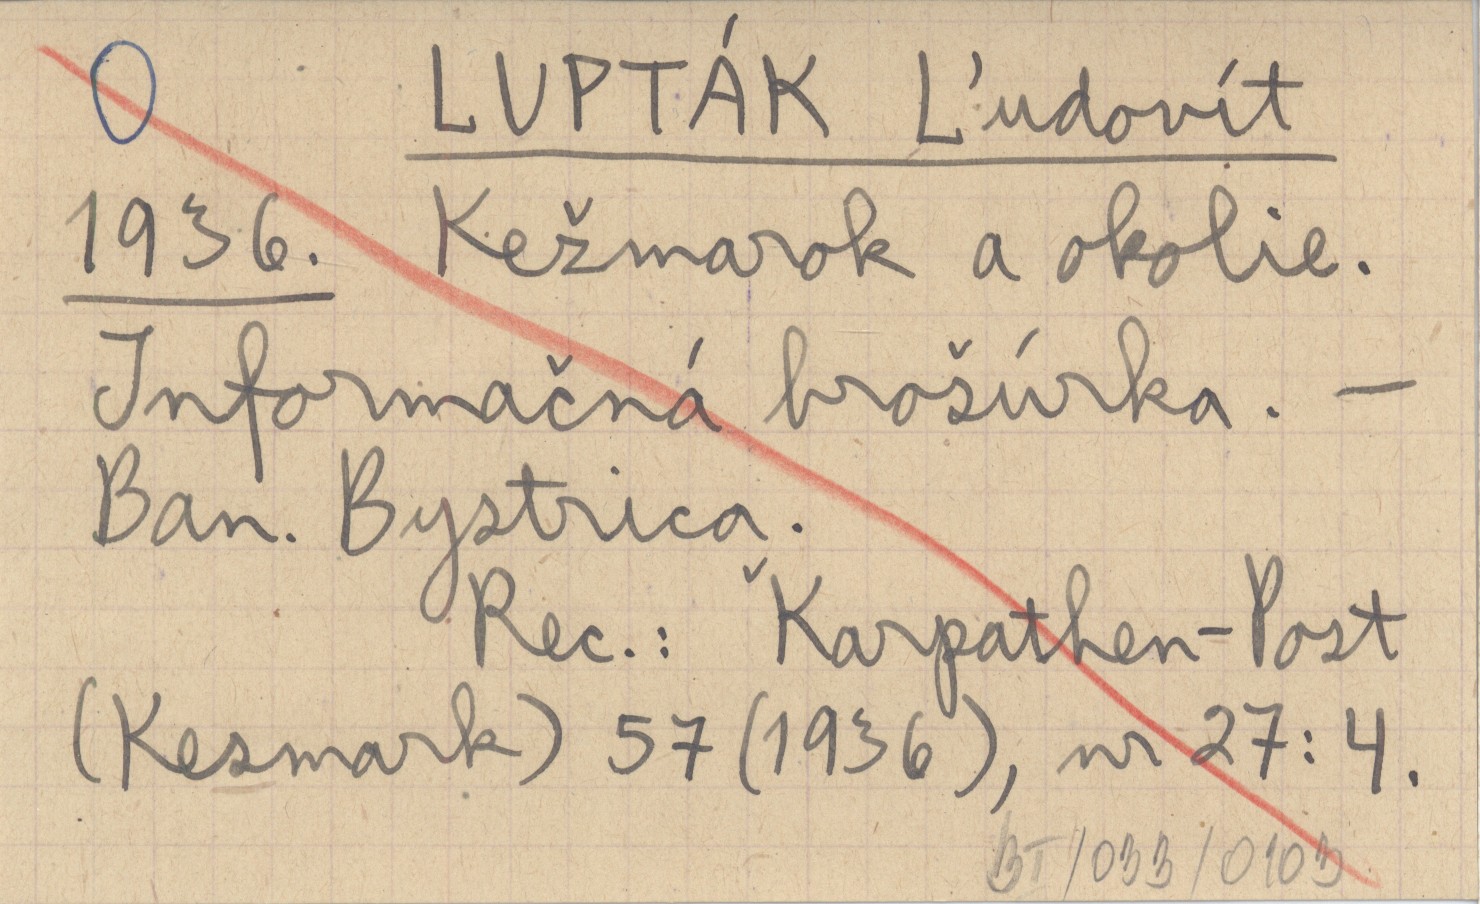 LUPTÁK Ľudovít
1936. Kežmarok a okolie.
Informačná brošúrka. —
Ban. Bystrica.
Rec.: Karpathen-Post
(Kesmark) 57 (1936), nr 27: 4.
BT/033/0103